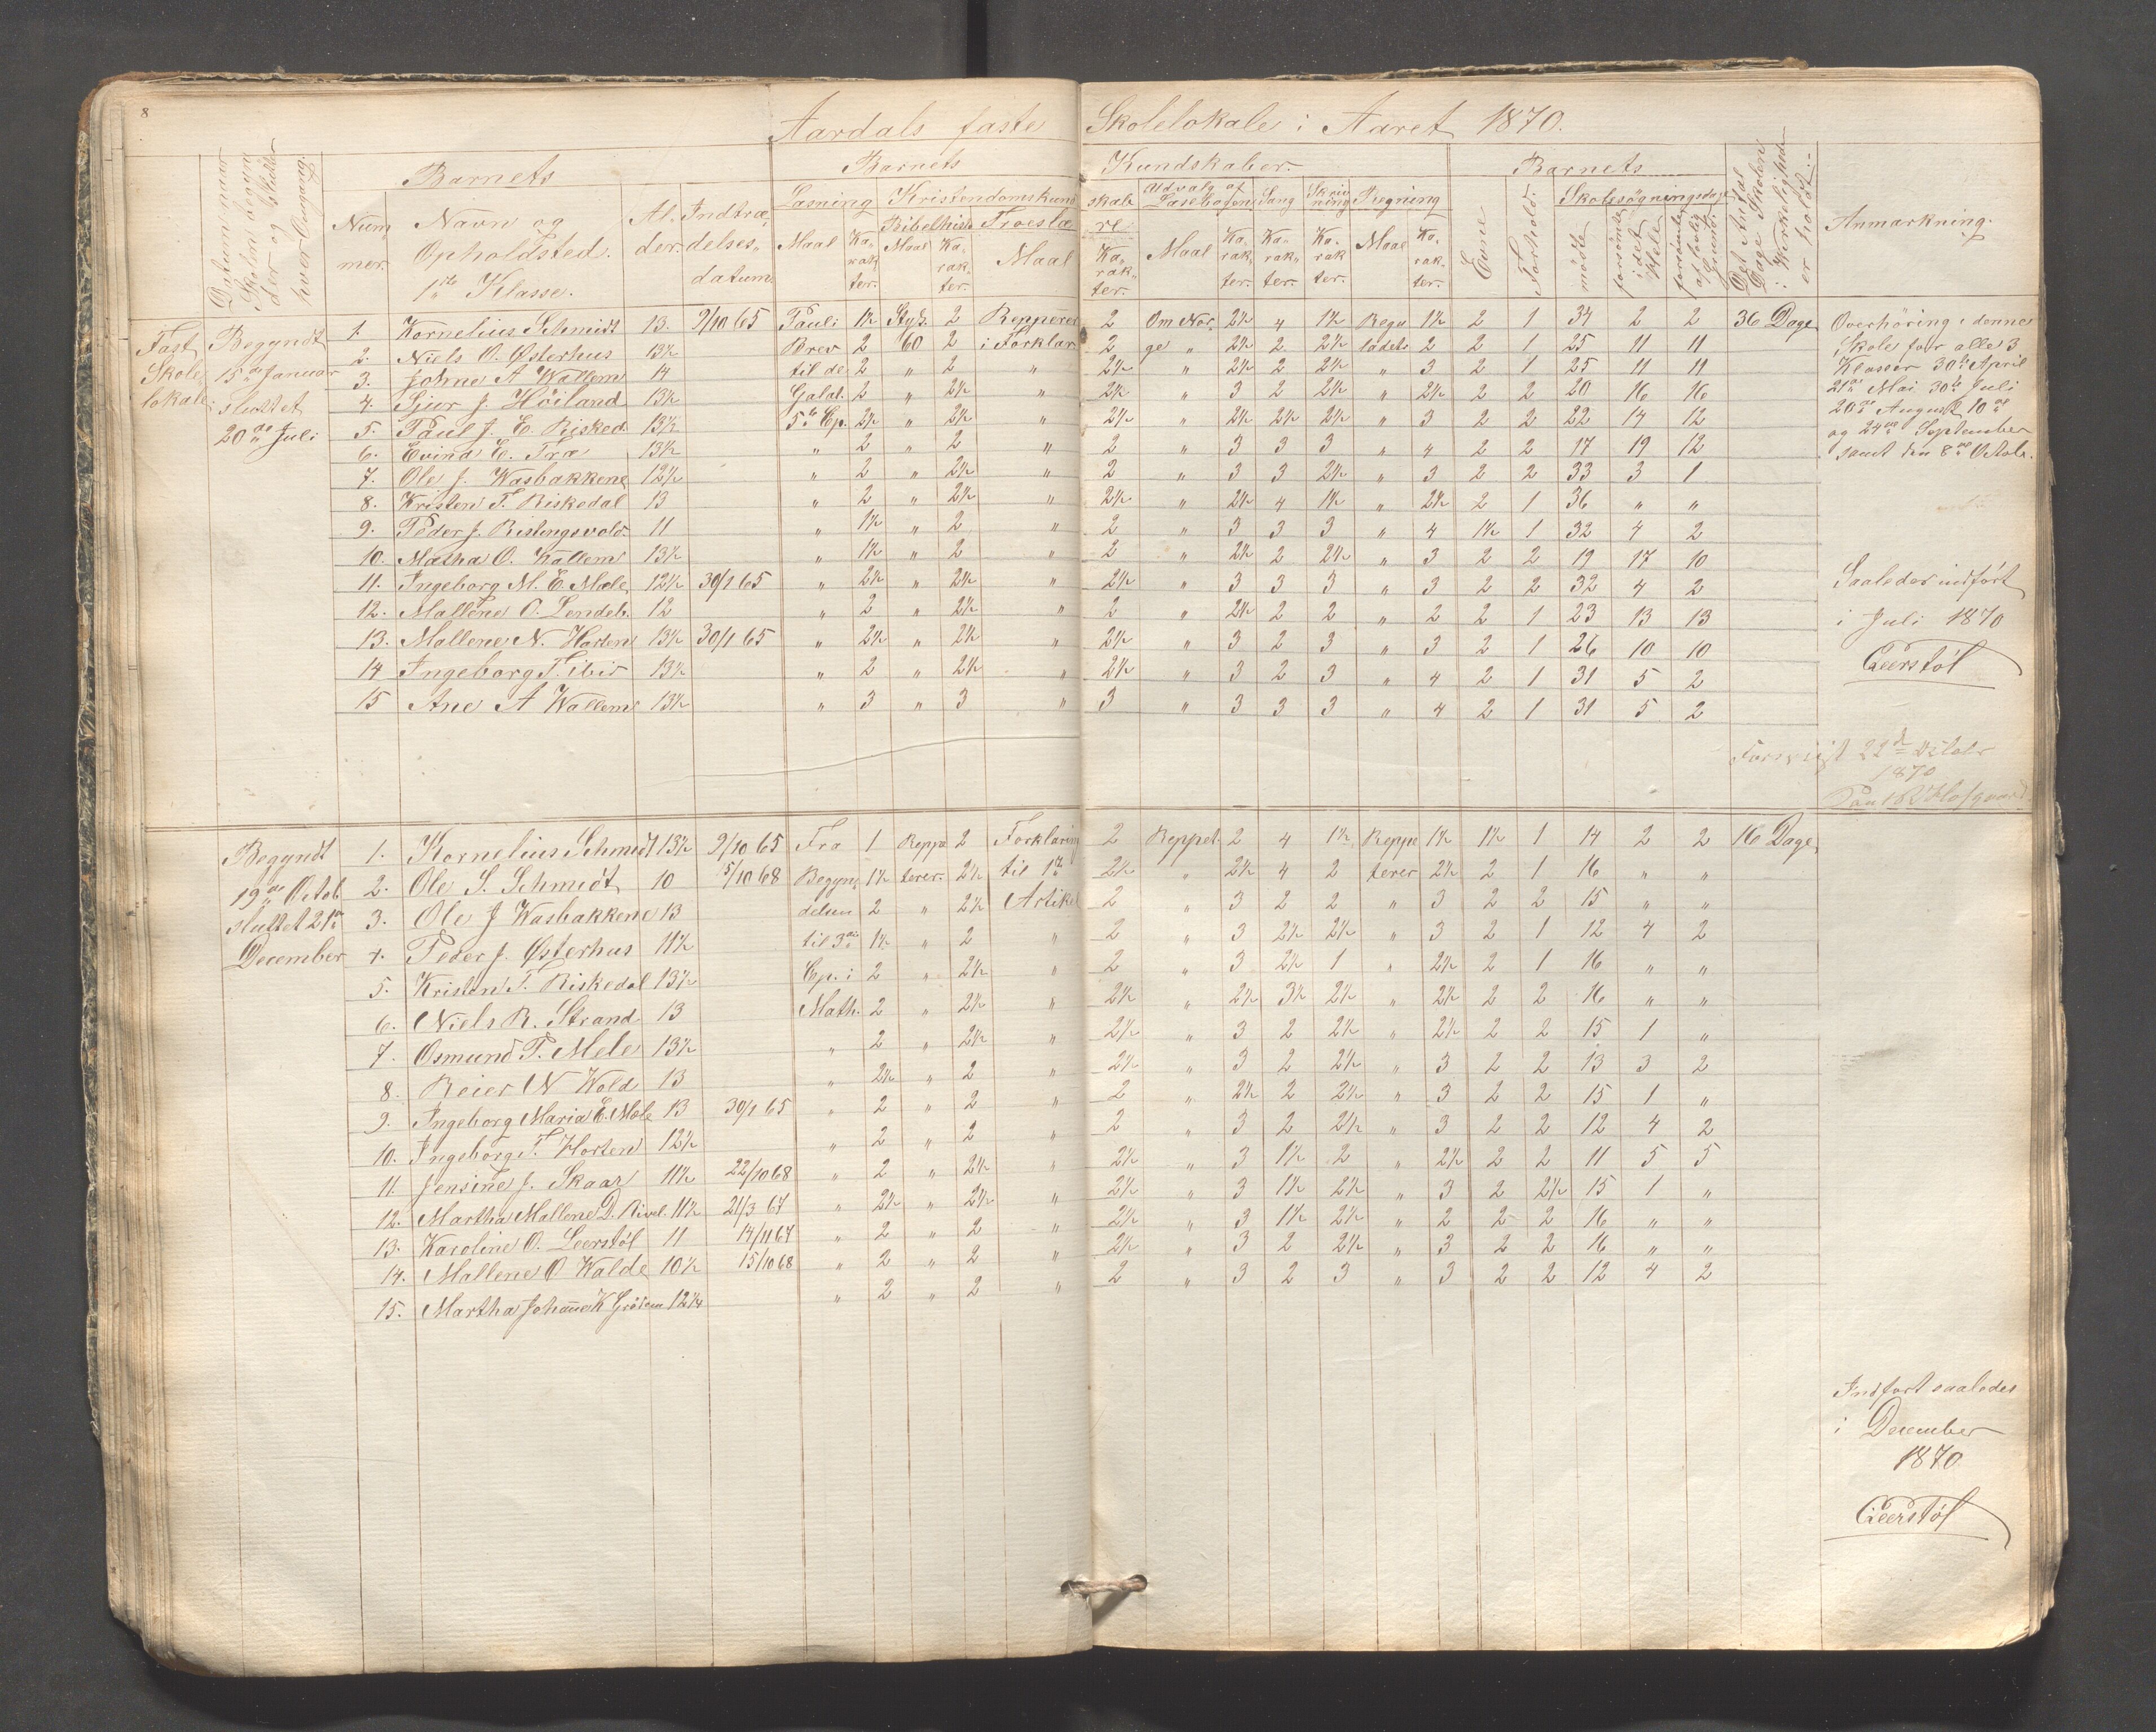 8
Aardals faste Skolelokale i Aaret 1870.
Datum naar Skolen begynder og slutter hver Omgang.
Barnets
Nummer.
Navn og Opholdsted.
1ste Klasse.
Alder.
Indtrædelsesdatum.
Barnets Kundskaber.
Læsning
Maal
Karakter.
Kristendomskundskab
Bibelhist.
Maal
Karakter.
Troeslære
Maal
Karakter.
Udvalg af Læsebogen
Maal
Karakter.
Sang
Karakter.
Skrivning
Karakter.
Regning
Maal
Karakter.
Barnets
Evne
Forhold.
Skolesøgningsdage
mødte
forsømte i det Hele
forsømte af lovlig Grund.
Det Antal Dage Skolen i Virkelighed er holdt.
Anmærkning.
Fast Skolelokale
Begyndt 15de Januar sluttet 20de Juli
1. Kornelius Schmidt 13. 9/10 65 Pauli 1½ Styk. 2 Repperer 2 Om Nor, 2½ 4 1½ Regu 1½ 2 1 34 2 2 36 Dage
2. Niels O. Østerhus 13½ Brev 2 60 2 i Forklar 2 ge „ 2½ 2 2½ ladetr 2 2 1 25 11 11
3. Johne A Wallem 14 til de 2 „ 2 „ 2½ „ 2½ 2 2½ „ 3 2 1 25 11 11
4. Sjur J. Høiland 13½ Galat. 2 „ 2½ „ 2½ „ 3 2 2½ „ 2½ 2 2 20 16 16
5. Paul J. E. Risked. 13½ 5te Cp. 2½ „ 2½ „ 2½ „ 2½ 2½ 2½ „ 3 2 2 22 14 12
6. Evind E. Træ 13½ „ 2 „ 2 „ 2 „ 3 3 3 „ 4 2 2 17 19 12
7. Ole J. Wasbakkene 12½ „ 2 „ 2½ „ 2 „ 3 3 2½ „ 3 2 2 33 3 1
8. Kristen T. Riskedal 13 „ 2 „ 2½ „ 2½ „ 2½ 4 1½ „ 2½ 2 1 36 „ „
9. Peder J. Ristingsvold. 11 „ 1½ „ 2 „ 2 „ 3 3 3 „ 4 1½ 1 32 4 2
10. Matha O. Kallem 13½ „ 1½ „ 2 „ 2 „ 2½ 2 2½ „ 3 2 2 19 17 10
11. Ingeborg M. E. Mæle 12½ 30/1 65 „ 2½ „ 2½ „ 2½ „ 3 3 3 „ 3 2 2 32 4 2
12. Mallene O. Lendeb. 12 „ 2 „ 2½ „ 2 „ 2½ 2 2 „ 2 2 1 23 13 13
13. Mallene N. Horten 13½ 30/1 65 „ 2½ „ 2½ „ 2½ „ 3 2 3 „ 3 2 1 26 10 10
14 Ingeborg T. ibid 13½ „ 2 „ 2½ „ 2½ „ 3 2 3 „ 4 2 1 31 5 2
15 Ane A Wallem 13½ „ 3 „ 3 „ 3 „ 3 3 3 „ 4 2 1 31 5 2
Overhøring i denne
Skole for alle 3
Klasser 30te April
21de Mai 30te Juli
20de August 10de
og 24de September
samt den 8de Octob.
Saaledes indført
i Juli 1870
Leerstøl
22de
1870
Begyndt 19de Octob. sluttet 21de December
1. Kornelius Schmidt 13½ 9/10 65 Fra 1 Reppe 2 Forklaring 2 Reppet. 2 4 1½ Reppe 1½ 1½ 1 14 2 2 16 Dage
2. Ole S. Schmidt 10 5/10 68 Begyn, 1½ terer. 2½ til 1ste 2½ „ 2½ 4 2 terer 2½ 2 1 16 „ „
3. Ole J Wasbakkene 13 delsen 2 „ 2½ Artikel 2 „ 3 2 2 „ 3 2 2 15 „ „
4. Peder J. Østerhus 11½ til 3die 1½ „ 2 „ 2 „ 3 2½ 2½ „ 3 2 1 12 4 2
5. Kristen T. Riskedal 13½ Cp. i 2 „ 2½ „ 2 „ 3 2½ 1 „ 2½ 2 1 16 „ „
6. Niels R. Strand 13 Math. 2 „ 2½ „ 2½ „ 2½ 3½ 2½ „ 2½ 2 2 16 „ „
7. Osmund T. Mele 13½ „ 2 „ 2½ „ 2½ „ 3 2 2½ „ 2½ 2 2 15 1 „
8. Reier N Wold 13 „ 2½ „ 2 „ 2½ „ 3 2 2½ „ 3 2 2 13 3 2
9. Ingeborg Maria E. Mæle 13 30/1 65 „ 2 „ 2 „ 2 „ 2½ 2 2½ „ 3 2 2 15 1 „
10. Ingeborg T. Horten 12½ „ 2 „ 2 „ 2 „ 3 2 2½ „ 3 2 2 12 4 2
11. Jensine J. Skaar 11½ 22/10 68 „ 2 „ 2½ „ 2½ „ 3 1½ 2 „ 2½ 2 2 11 5 5
12. Martha Mallene D. Rivel. 11½ 21/3 67 „ 2½ „ 2½ „ 2½ „ 3 1½ 2½ „ 3 2 2½ 15 1 „
13. Karoline O. Leerstøl 11 14/11 67 „ 2 „ 2 „ 2½ „ 3 1½ 2½ „ 2 2 2 16 „ „
14. Mallene O Walde 10½ 15/10 68 „ 2 „ 2 „ 2½ „ 3 2 2½ „ 3 2 2 16 „ „
15. Martha Johanne K Grødem 12¼ „ 2 „ 2 „ 2 „ 3 2 3 „ 3 2 2 12 4 2
Indført saaledes
i December
1870
Leerstøl